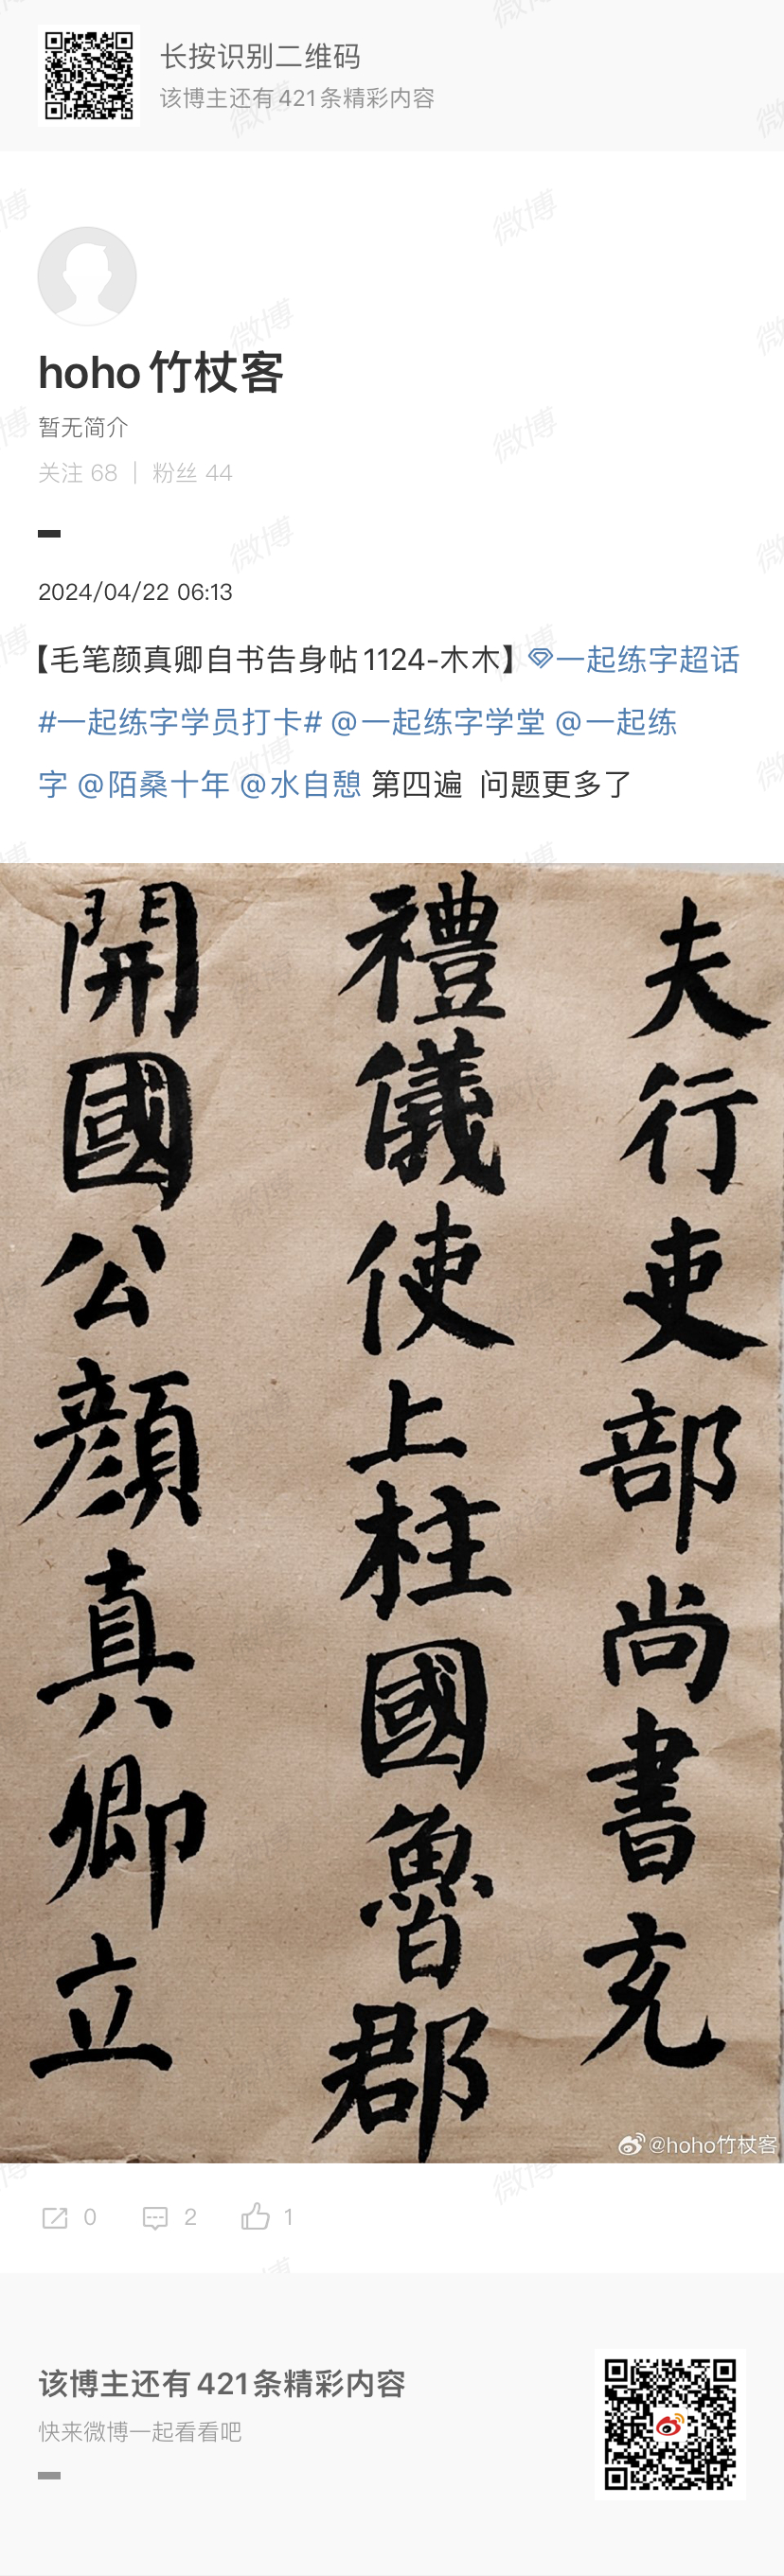 长按识别二维码
该博主还有421条精彩内容
hoho竹杖客
暂无简介
关注 68 | 粉丝 44
2024/04/22 06:13
【毛笔颜真卿自书告身帖1124-木木】一起练字超话
#一起练字学员打卡# @一起练字学堂 @一起练
字 @陌桑十年 @水自憩 第四遍 问题更多了
夫行吏部尚書充
禮儀使上柱國魯郡
開國公顔真卿立
@hoho竹杖客
0 2 1
该博主还有421条精彩内容
快来微博一起看看吧